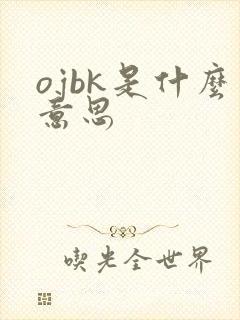 ojbk是什麼
意思
喫光全世界